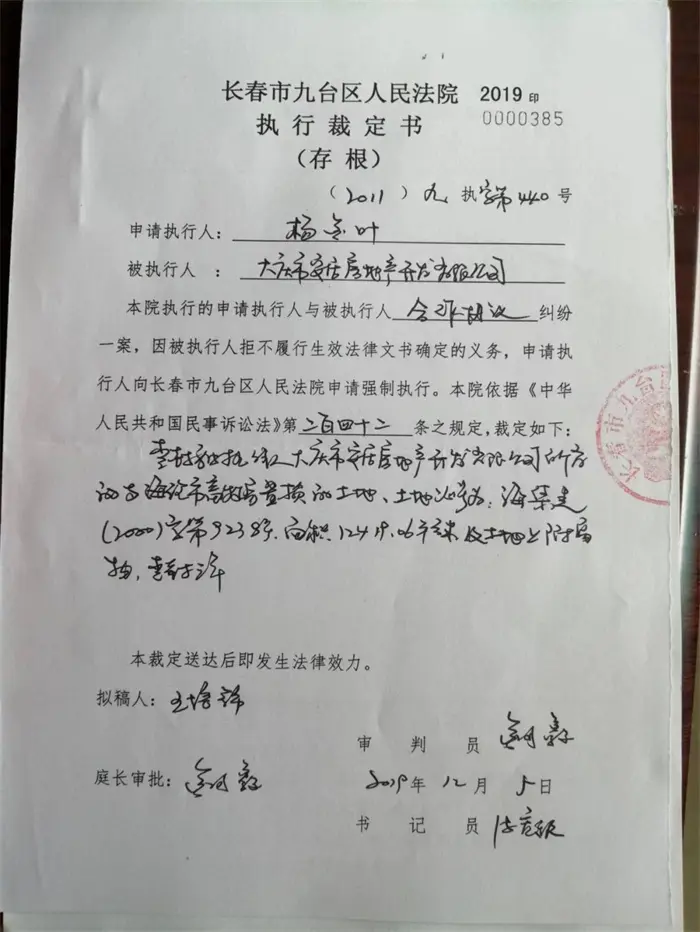 长春市九台区人民法院 2019印
执行裁定书 0000385
（存根）
（2011）九执字第440号
申请执行人：杨金叶
被执行人：大庆市安居房地产开发有限公司
本院执行的申请执行人与被执行人 合作协议 纠纷
一案，因被执行人拒不履行生效法律文书确定的义务，申请执
行人向长春市九台区人民法院申请强制执行。本院依据《中华
人民共和国民事诉讼法》第二百四十二条之规定，裁定如下：
查封被执行人大庆市安居房地产开发有限公司所有
的与海伦市高级 置换的土地、土地 ：海集建
(2000)字第9238号.面积1241 .06平方米及土地上附属
物，查封三年
本裁定送达后即发生法律效力。
拟稿人：王
审判员
庭长审批：
2019年12月5日
书记员
长春市九台